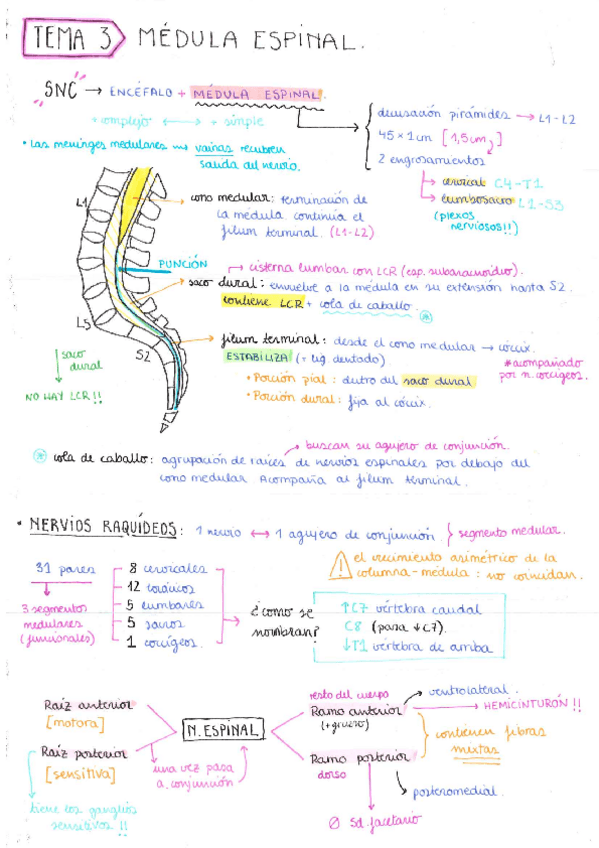 TEMA 3 MÉDULA ESPINAL.
SNC → ENCÉFALO + MÉDULA ESPINAL.
+ complejo ⟷ + simple
decusación pirámides → L1-L2
45 x 1 cm [1,5cm]
2 engrosamientos
→ cervical C4-T1
→ lumbosacro L1-S3
(plexos nerviosos!!)
• Las meninges medulares → vainas recubren
salida del nervio.
L1
cono medular: terminación de
la médula continúa el
filum terminal. (L1-L2)
PUNCIÓN
→ cisterna lumbar con LCR (esp. subaracnoideo).
saco dural: envuelve a la médula en su extensión hasta S2.
contiene LCR + cola de caballo.
L5
S2
filum terminal: desde el cono medular → cóccix.
ESTABILIZA (= lig. dentado)
*acompañado
por n. coccígeos.
• Porción pial: dentro del saco dural
• Porción dural: fija al cóccix.
↓ saco
dural
NO HAY LCR!!
→ buscan su agujero de conjunción.
* cola de caballo: agrupación de raíces de nervios espinales por debajo del
cono medular. Acompaña al filum terminal.
• NERVIOS RAQUÍDEOS: 1 nervio ⟷ 1 agujero de conjunción } segmento medular.
! el crecimiento asimétrico de la
columna-médula: no coincidan.
31 pares
3 segmentos
medulares
(funcionales)
8 cervicales
12 torácicos
5 lumbares
5 sacros
1 coccígeos.
¿cómo se
nombran?
↑C7 vértebra caudal
C8 (pasa ↓C7).
↓T1 vértebra de arriba
Raíz anterior
[motora]
Raíz posterior
[sensitiva]
tiene los ganglios
sensitivos !!
N. ESPINAL
una vez pasa
a. conjunción
resto del cuerpo
Ramo anterior
(+grueso)
→ ventrolateral.
→ HEMICINTURÓN !!
contienen fibras
mixtas
Ramo posterior
dorso
→ posteromedial.
Ø Sd. facetario